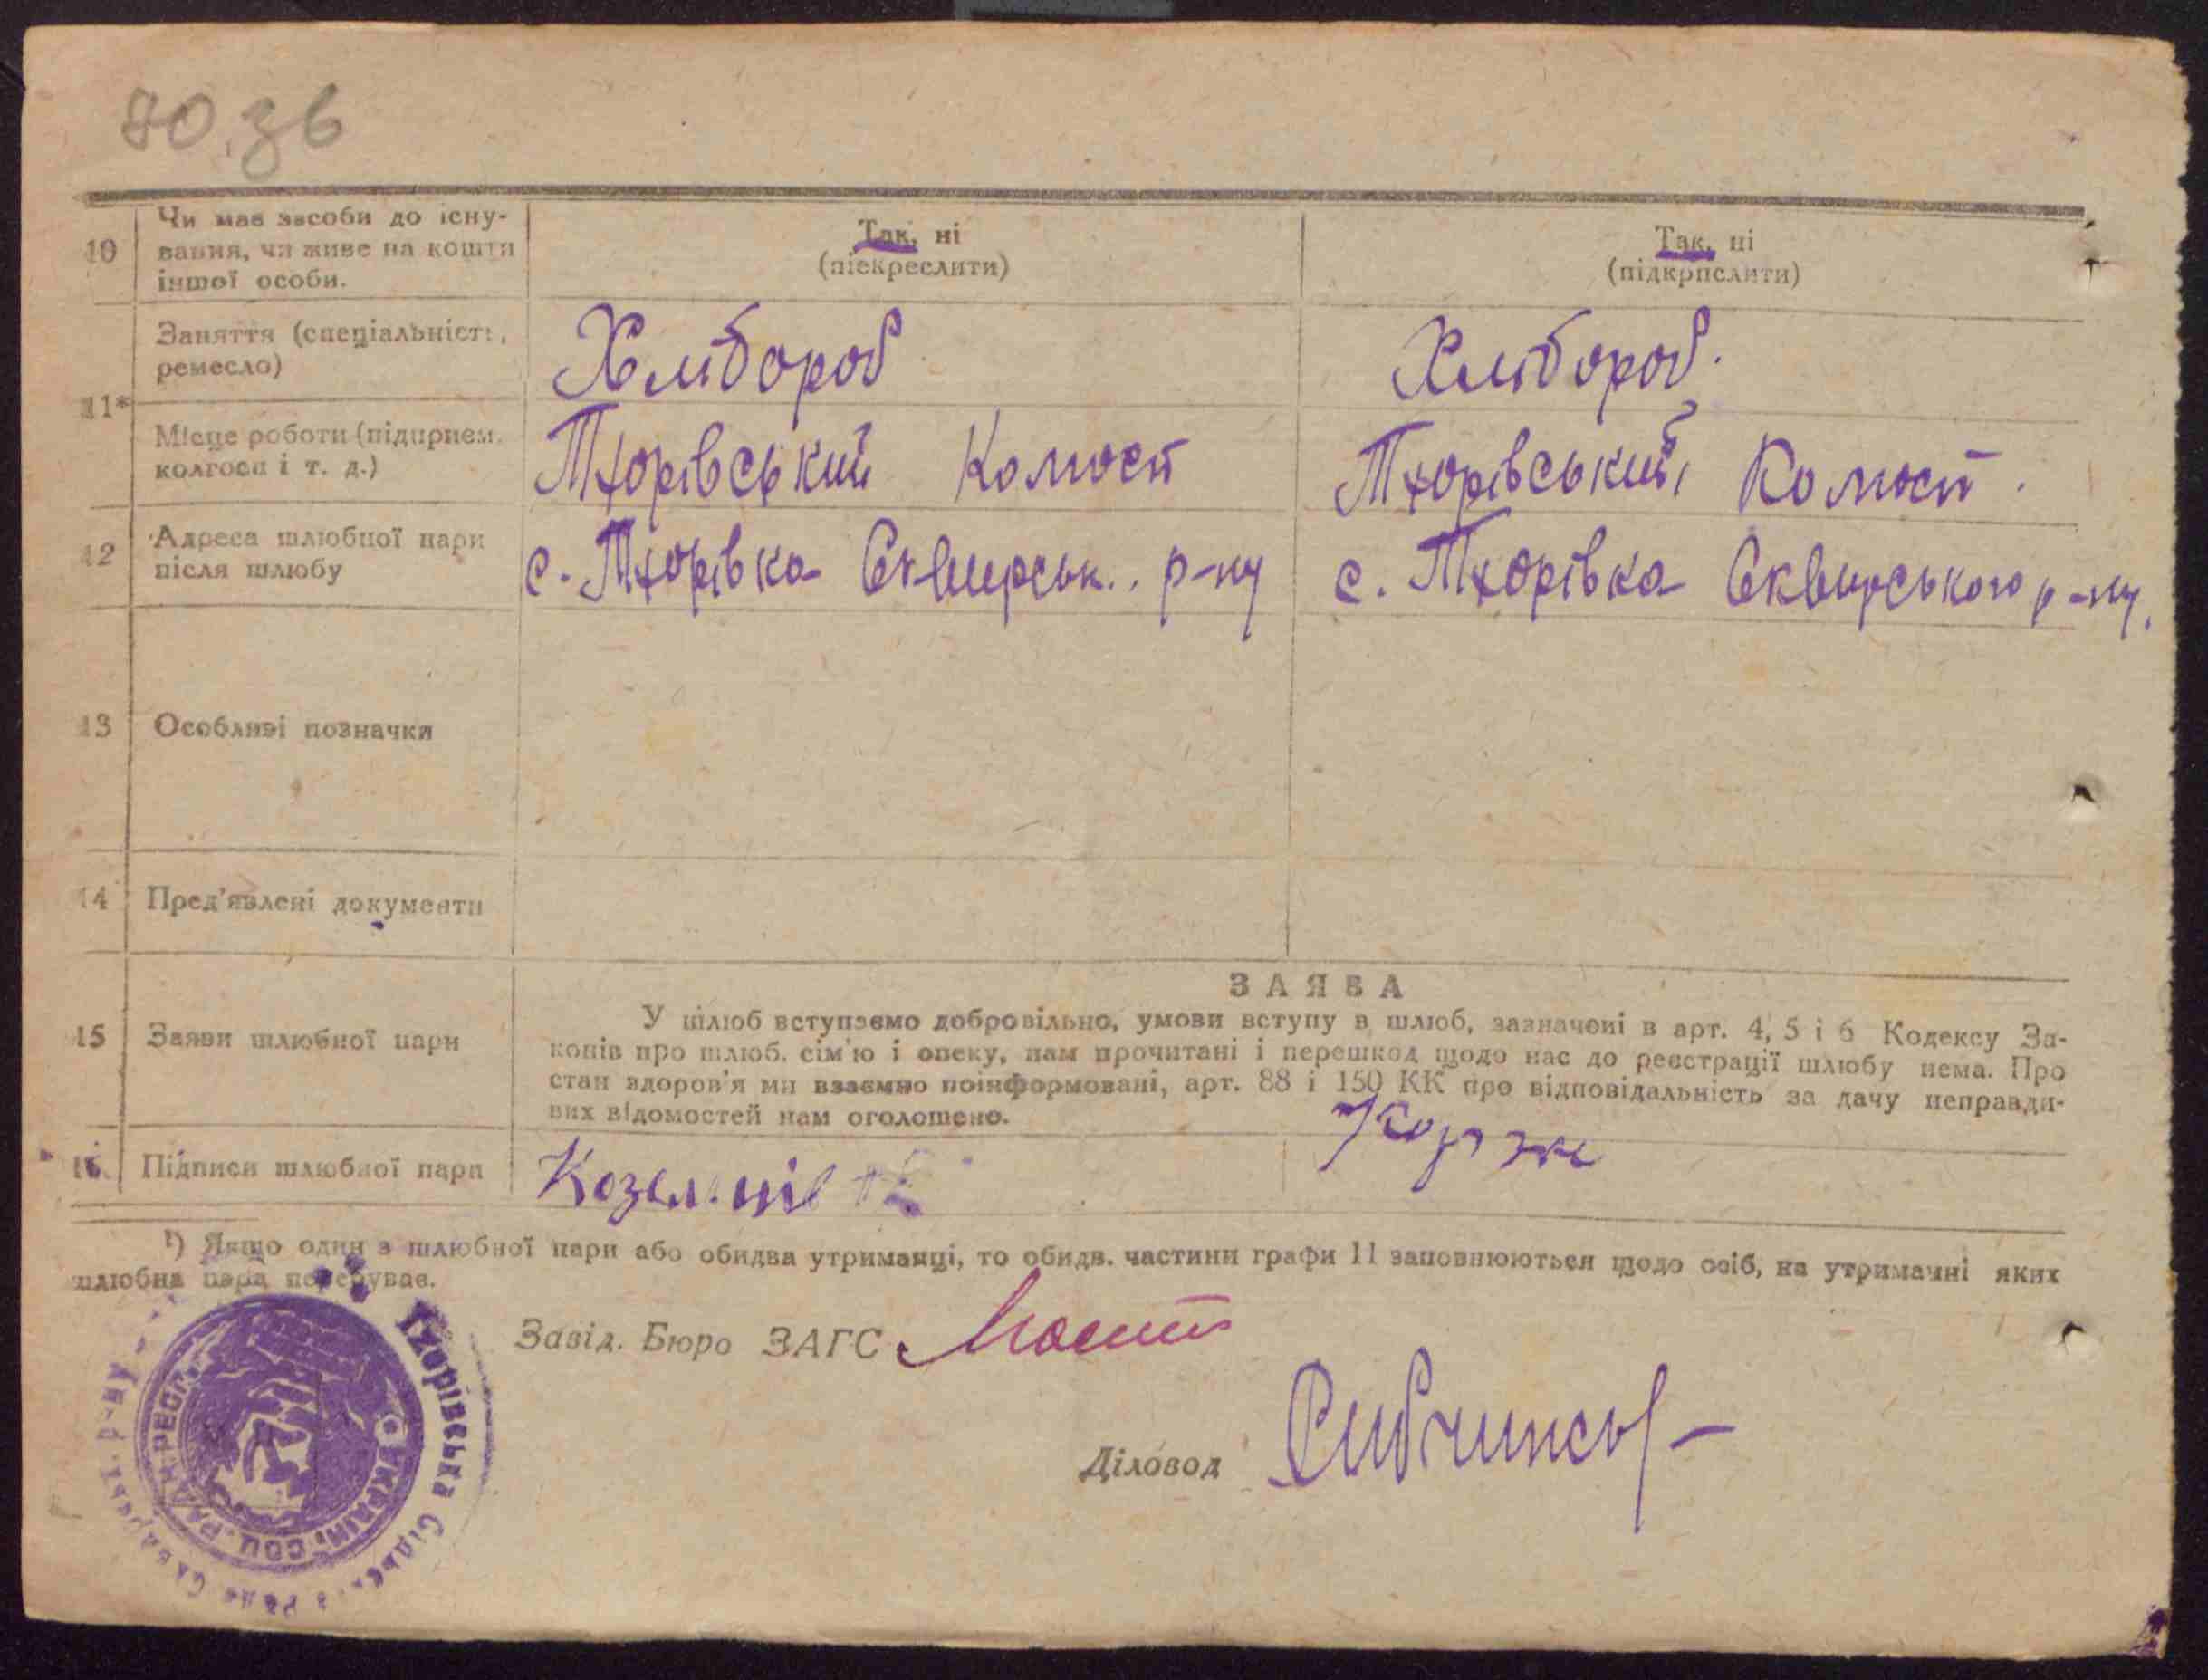 80.зв
10 Чи має засоби до існу-
вання, чи живе на кошти
іншої особи.
Так, ні
(піекреслити)
Так, ні
(підкрпслити)
11*
Заняття (спеціальність,
ремесло)
Хлібороб
Хлібороб.
Місце роботи (підприєм.
колгосп і т. д.)
Тхорівський
Тхорівський
12 Адреса шлюбної пари
після шлюбу
с. Тхорівка Сквирськ.. р-ну
с. Тхорівка Сквирського р-ну.
13 Особливі позначки
14 Пред'явлені документи
15 Заяви шлюбної пари
ЗАЯВА
У шлюб вступаємо добровільно, умови вступу в шлюб, зазначені в арт. 4, 5 і 6 Кодексу За-
конів про шлюб. сім'ю і опеку, нам прочитані і перешкод щодо нас до реєстрації шлюбу нема. Про
стан здоров'я ми взаємно поінформовані, арт. 88 і 150 КК про відповідальність за дачу неправди-
вих відомостей нам оголошено.
16. Підписи шлюбної пари
Корж
¹) Якщо один з шлюбної пари або обидва утриманці, то обидв. частини графи 11 заповнюються щодо осіб, на утриманні яких
шлюбна пара перебуває.
Завід. Бюро ЗАГС
Діловод
Тхорівська Сільська Рада Сквирськ. р-ну
УКРАЇН. СОЦ. РАДЯН. РЕСП.